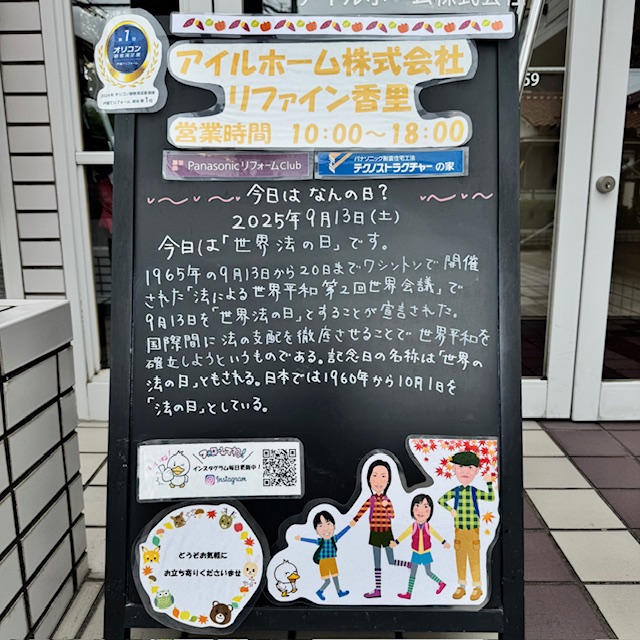 アイルホーム株式会社
第1位
オリコン
顧客満足度
アイルホーム株式会社
リファイン香里
営業時間 10:00～18:00
PanasonicリフォームClub
パナソニック耐震住宅工法
テクノストラクチャーの家
59
今日は なんの日?
2025年9月13日(土)
今日は「世界 法の日」です。
1965年の9月13日から20日までワシントンで開催
された「法による世界平和 第2回世界会議」で
9月13日を「世界法の日」とすることが宣言された。
国際間に法の支配を徹底させることで世界平和を
確立しようというものである。記念日の名称は「世界の
法の日」ともされる。日本では1960年から10月1日を
「法の日」としている。
フォローしてね!
インスタグラム毎日更新中!
Instagram
どうぞお気軽に
お立ち寄りくださいませ